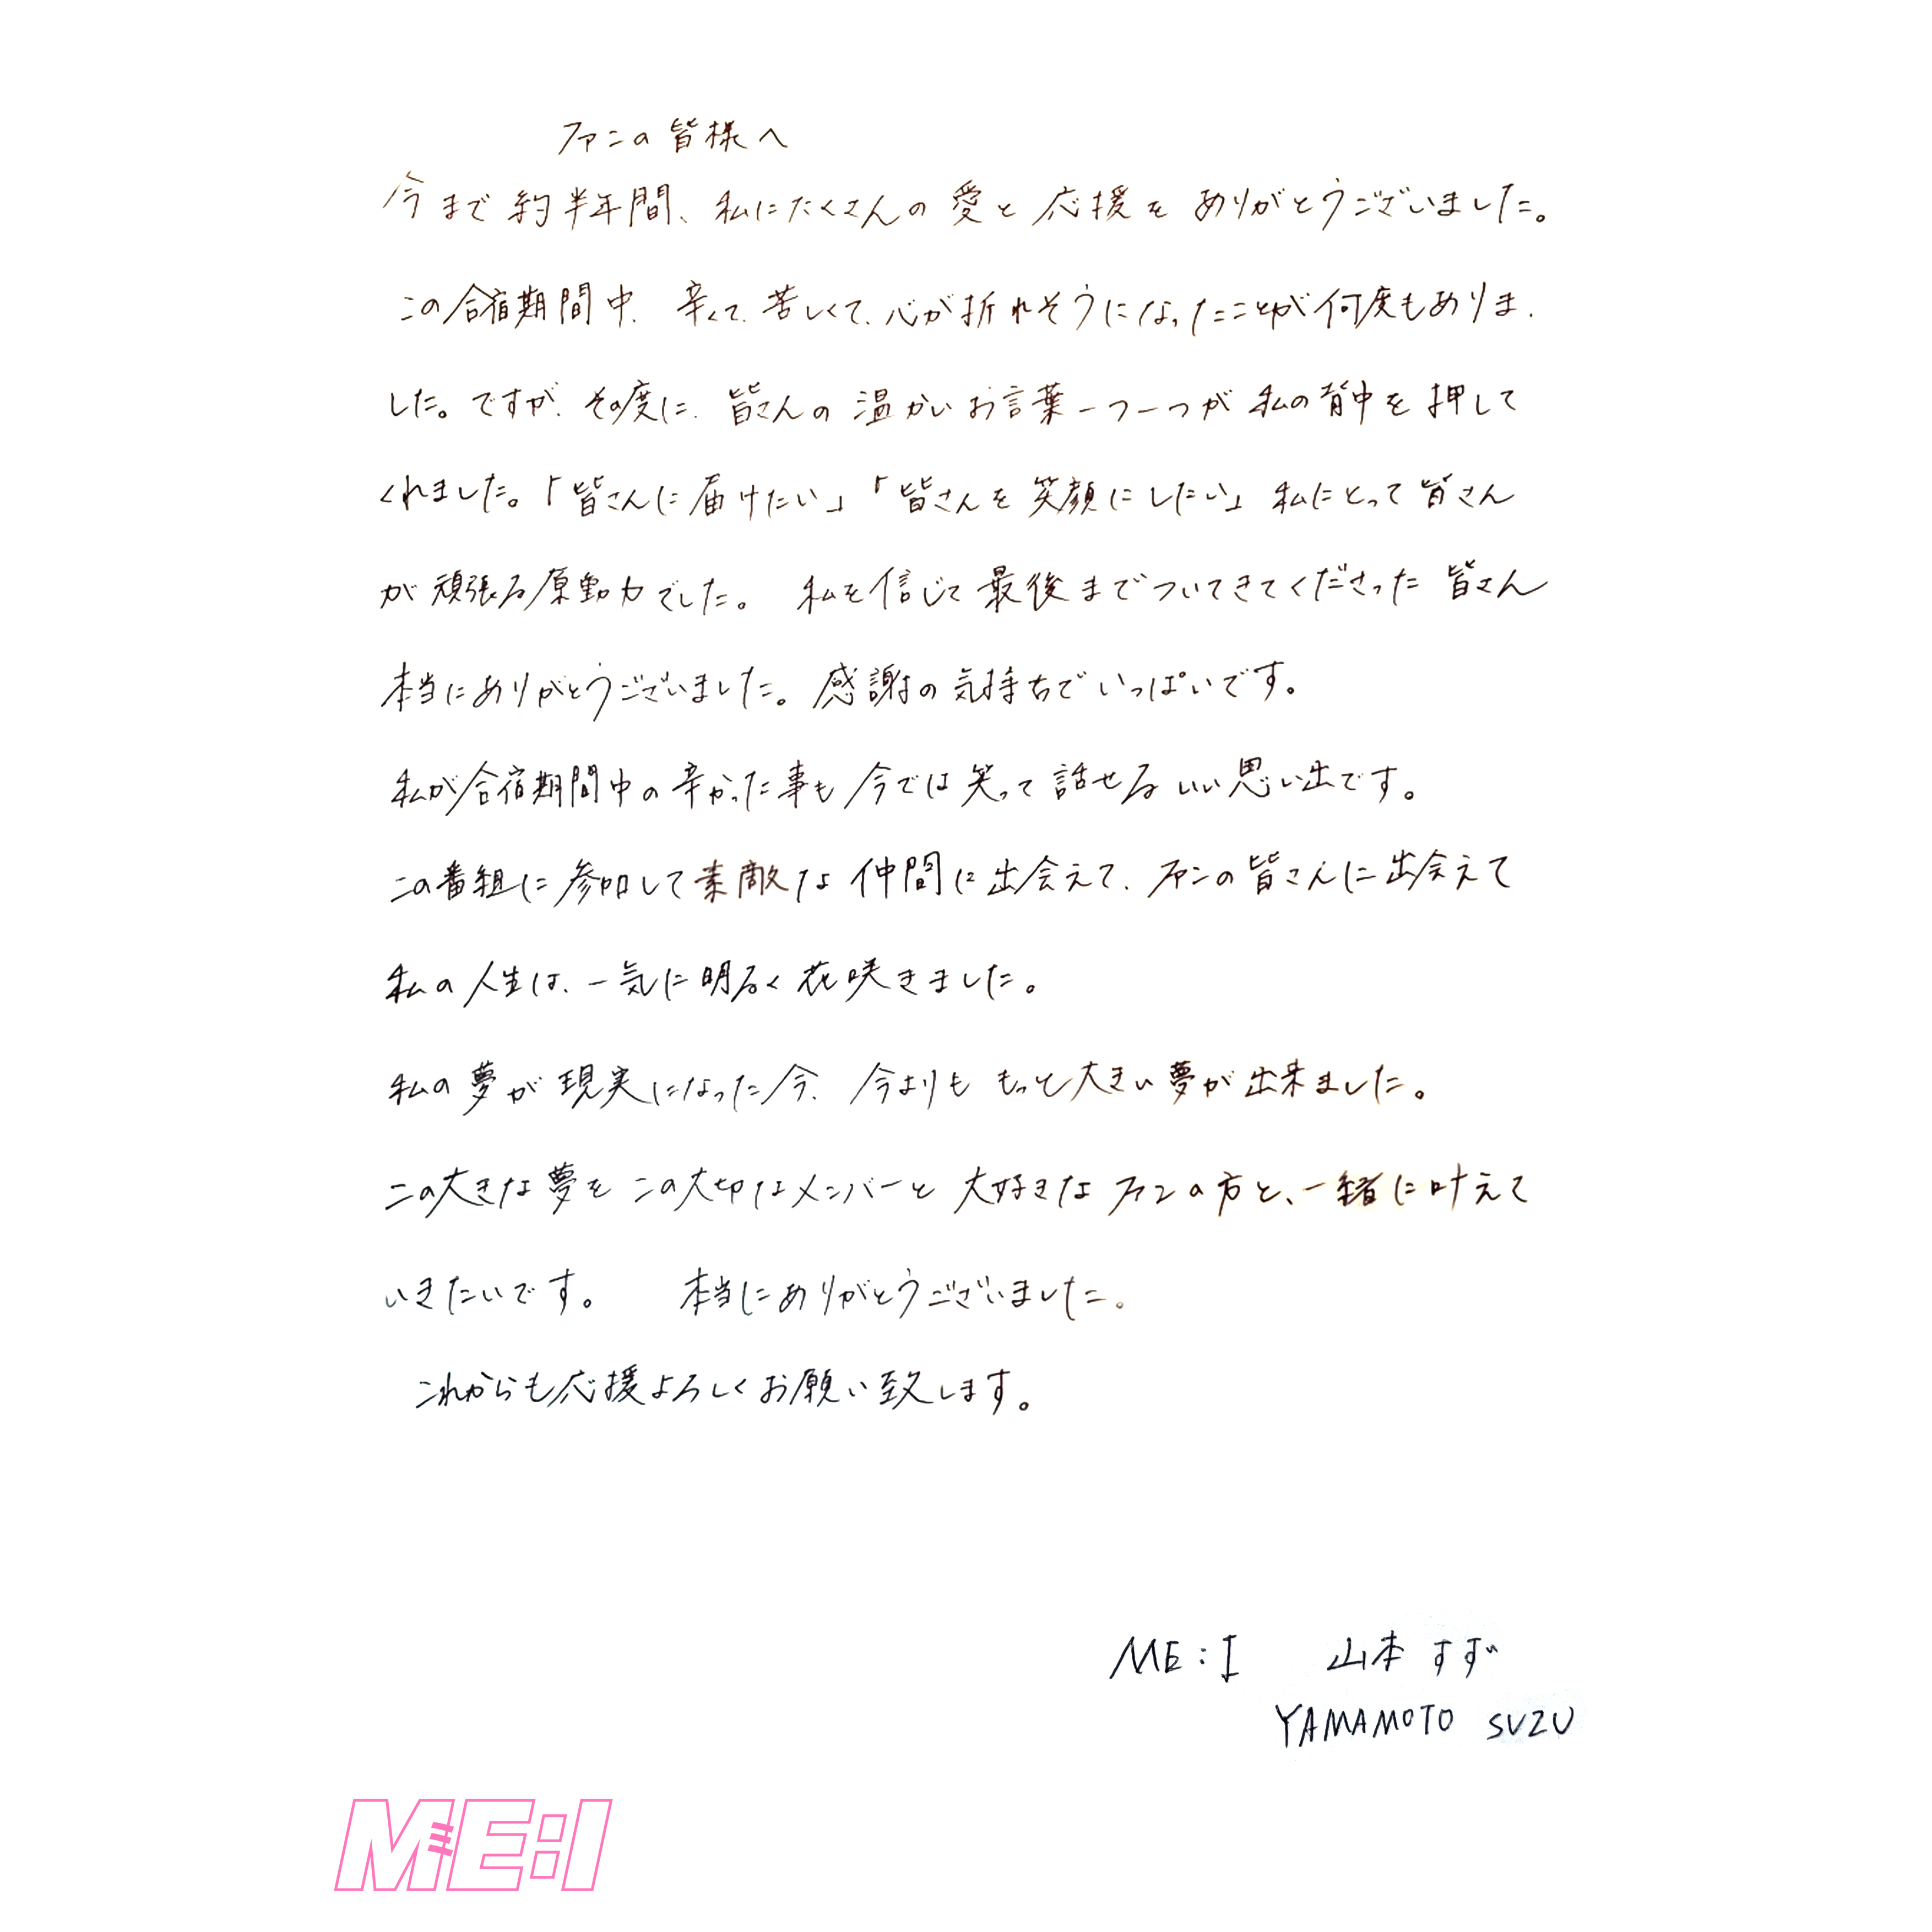 ファンの皆様へ
今まで約半年間、私にたくさんの愛と応援をありがとうございました。
この合宿期間中、辛くて、苦しくて、心が折れそうになったことが何度もありま
した。ですが、その度に、皆さんの温かいお言葉一つ一つが私の背中を押して
くれました。「皆さんに届けたい」「皆さんを笑顔にしたい」私にとって皆さん
が頑張る原動力でした。 私を信じて最後までついてきてくださった皆さん
本当にありがとうございました。感謝の気持ちでいっぱいです。
私が合宿期間中の辛かった事も今では笑って話せるいい思い出です。
この番組に参加して素敵な仲間に出会えて、ファンの皆さんに出会えて
私の人生は、一気に明るく花咲きました。
私の夢が現実になった今、今よりももっと大きい夢が出来ました。
この大きな夢をこの大切なメンバーと大好きなファンの方と、一緒に叶えて
いきたいです。 本当にありがとうございました。
これからも応援よろしくお願い致します。
ME:I 山本すず
YAMAMOTO SUZU
ME:I